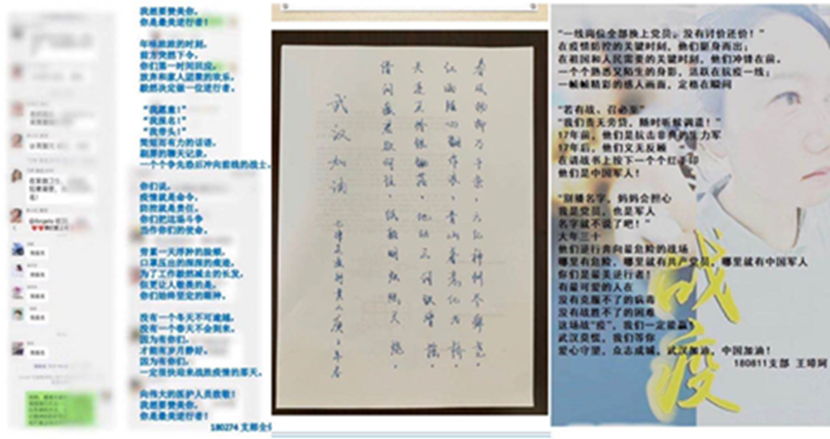 我想要赞美你，
你是最美逆行者！
年味浓浓的时刻，
前方突然下令，
你们第一时间回应，
放弃和家人团聚的欢乐，
毅然决定做一位逆行者。
“我愿意！”
“我报名！”
“我带头！”
简短而有力的话语，
刷屏的聊天记录，
一个个争先恐后冲向前线的战士。
你们说，
疫情就是命令，
防控就是责任，
你们把这场斗争
当作你们的使命。
劳累一天浮肿的脸颊，
口罩压出的深深的痕迹，
为了工作毅然减去的长发，
但更让人敬美的是，
你们始终坚定的眼神。
没有一个冬天不可逾越，
没有一个春天不会到来。
因为有你们，
才能有岁月静好。
因为有你们，
一定很快迎来战胜疫情的那天。
向伟大的医护人员致敬！
我想要赞美你，
你是最美逆行者！
180274 支部全体
春风杨柳万千条，六亿神州尽舜尧。
红雨随心翻作浪，青山着意化为桥。
天连五岭银锄落，地动三河铁臂摇。
借问瘟君欲何往，纸船明烛照天烧。
武汉加油
“一线岗位全部换上党员，没有讨价还价！”
在疫情防控的关键时刻，他们挺身而出；
在祖国和人民需要的关键时刻，他们冲锋在前。
一个个熟悉又陌生的身影，活跃在抗疫一线；
一帧帧精彩的感人画面，定格在瞬间
“若有战、召必至”
“我们责无旁贷，随时听候调遣！”
17年前，他们是抗击非典的生力军
17年后，他们义无反顾
在请战书上按下一个个红手印
他们是中国军人！
“别播名字，妈妈会担心
我是党员，也是军人
名字就不说了吧！”
大年三十
他们逆行奔向最危险的战场
哪里有危险，哪里就有共产党员，哪里就有中国军人
你们是最美逆行者！
有最可爱的人在
没有克服不了的病毒
没有战胜不了的困难
这场战“疫”，我们一定能赢！
武汉莫慌，我们等你
爱心守望，众志成城，武汉加油，中国加油！
180811支部 王晴珂
战疫